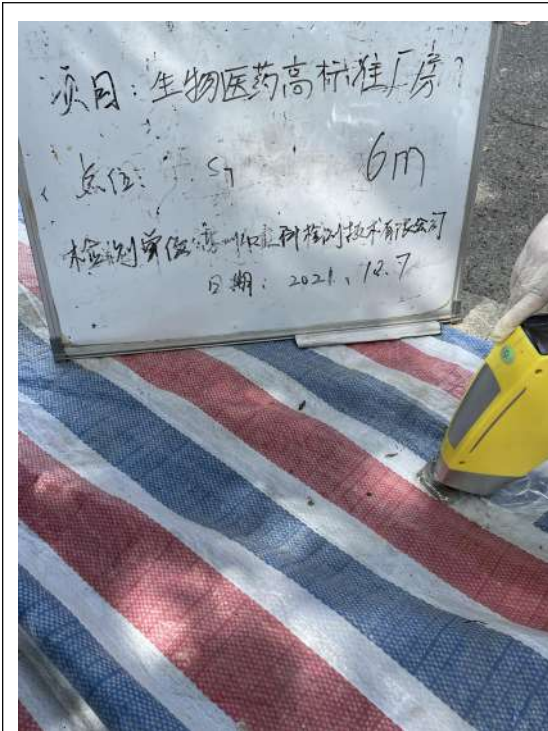 项目:生物医药高标准厂房
点位: S7 6m
检测单位:深圳中证科检测技术有限公司
日期:2021.12.7